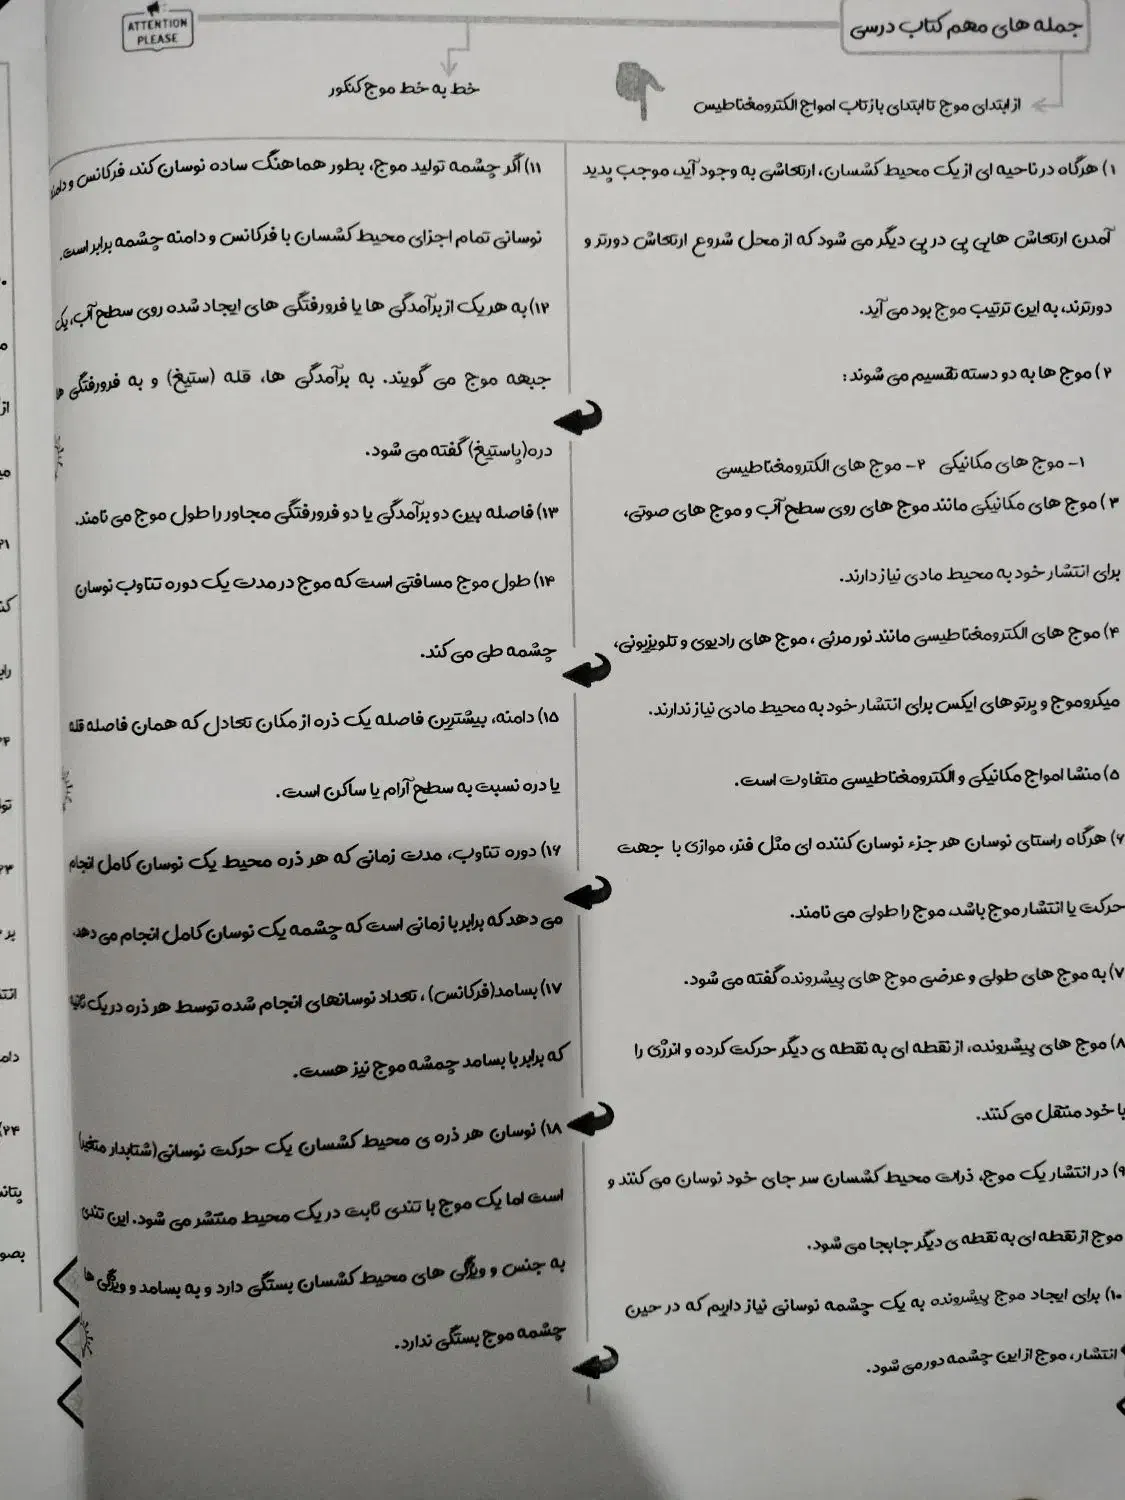 ATTENTION
PLEASE
جمله های مهم کتاب درسی
خط به خط موج کنکور
از ابتدای موج تا ابتدای بازتاب امواج الکترومغناطیس
۱) هرگاه در ناحیه ای از یک محیط کشسان، ارتعاشی به وجود آید، موجب پدید
آمدن ارتعاش هایی پی در پی دیگر می شود که از محل شروع ارتعاش دورتر و
دورترند، به این ترتیب موج بود می آید.
۲) موج ها به دو دسته تقسیم می شوند:
۱- موج های مکانیکی ۲- موج های الکترومغناطیسی
۳) موج های مکانیکی مانند موج های روی سطح آب و موج های صوتی،
برای انتشار خود به محیط مادی نیاز دارند.
۴) موج های الکترومغناطیسی مانند نور مرئی، موج های رادیوی و تلویزیونی،
میکروموج و پرتوهای ایکس برای انتشار خود به محیط مادی نیاز ندارند.
۵) منشا امواج مکانیکی و الکترومغناطیسی متفاوت است.
۶) هرگاه راستای نوسان هر جزء نوسان کننده ای مثل فنر، موازی با جهت
حرکت یا انتشار موج باشد، موج را طولی می نامند.
۷) به موج های طولی و عرضی موج های پیشرونده گفته می شود.
۸) موج های پیشرونده، از نقطه ای به نقطه ی دیگر حرکت کرده و انرژی را
با خود منتقل می کنند.
۹) در انتشار یک موج، ذرات محیط کشسان سر جای خود نوسان می کنند و
موج از نقطه ای به نقطه ی دیگر جابجا می شود.
۱۰) برای ایجاد موج پیشرونده به یک چشمه نوسانی نیاز داریم که در حین
انتشار، موج از این چشمه دور می شود.
۱۱) اگر چشمه تولید موج، بطور هماهنگ ساده نوسان کند، فرکانس و دامنه
نوسانی تمام اجزای محیط کشسان با فرکانس و دامنه چشمه برابر است.
۱۲) به هر یک از برآمدگی ها یا فرورفتگی های ایجاد شده روی سطح آب، یک
جبهه موج می گویند. به برآمدگی ها، قله (ستیغ) و به فرورفتگی ها
دره(پاستیغ) گفته می شود.
۱۳) فاصله بین دو برآمدگی یا دو فرورفتگی مجاور را طول موج می نامند.
۱۴) طول موج مسافتی است که موج در مدت یک دوره تناوب نوسان
چشمه طی می کند.
۱۵) دامنه، بیشترین فاصله یک ذره از مکان تعادل که همان فاصله قله
یا دره نسبت به سطح آرام یا ساکن است.
۱۶) دوره تناوب، مدت زمانی که هر ذره محیط یک نوسان کامل انجام
می دهد که برابر با زمانی است که چشمه یک نوسان کامل انجام می دهد.
۱۷) بسامد(فرکانس)، تعداد نوسانهای انجام شده توسط هر ذره در یک ثانیا
که برابر با بسامد چمشه موج نیز هست.
۱۸) نوسان هر ذره ی محیط کشسان یک حرکت نوسانی(شتابدار متغیر)
است اما یک موج با تندی ثابت در یک محیط منتشر می شود. این تندی
به جنس و ویژگی های محیط کشسان بستگی دارد و به بسامد و ویژگی ها
چشمه موج بستگی ندارد.